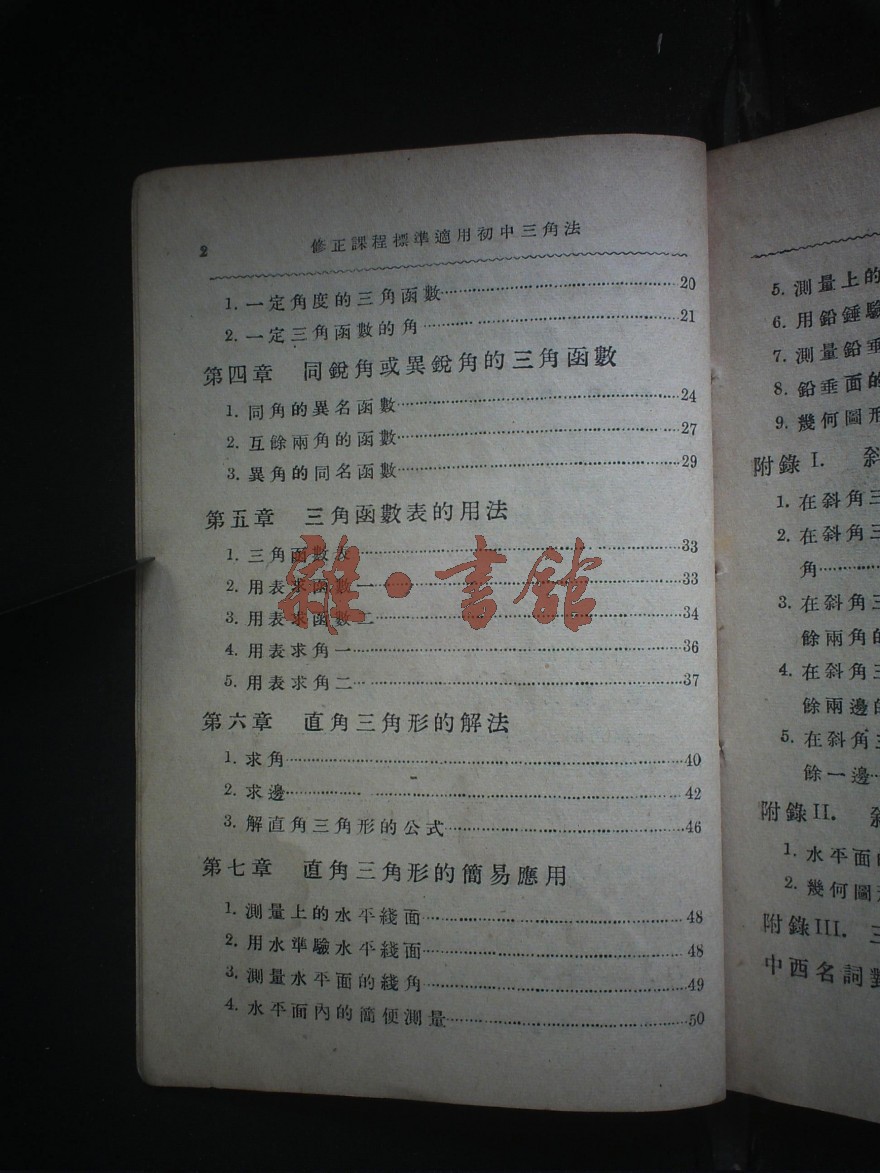 2 修正課程標準適用初中三角法
1. 一定角度的三角函數 20
2. 一定三角函數的角 21
第四章 同銳角或異銳角的三角函數
1. 同角的異名函數 24
2. 互餘兩角的函數 27
3. 異角的同名函數 29
第五章 三角函數表的用法
1. 三角函數表 33
2. 用表求函數一 33
3. 用表求函數二 34
4. 用表求角一 36
5. 用表求角二 37
第六章 直角三角形的解法
1. 求角 40
2. 求邊 42
3. 解直角三角形的公式 46
第七章 直角三角形的簡易應用
1. 測量上的水平綫面 48
2. 用水準驗水平綫面 48
3. 測量水平面的綫角 49
4. 水平面內的簡便測量 50
雜·書館
5. 測量上的
6. 用鉛錘驗
7. 測量鉛垂
8. 鉛垂面的
9. 幾何圖形
附錄I. 斜
1. 在斜角三
2. 在斜角三
角
3. 在斜角三
餘兩角的
4. 在斜角三
餘兩邊的
5. 在斜角三
餘一邊
附錄II. 斜
1. 水平面
2. 幾何圖形
附錄III. 三
中西名詞對